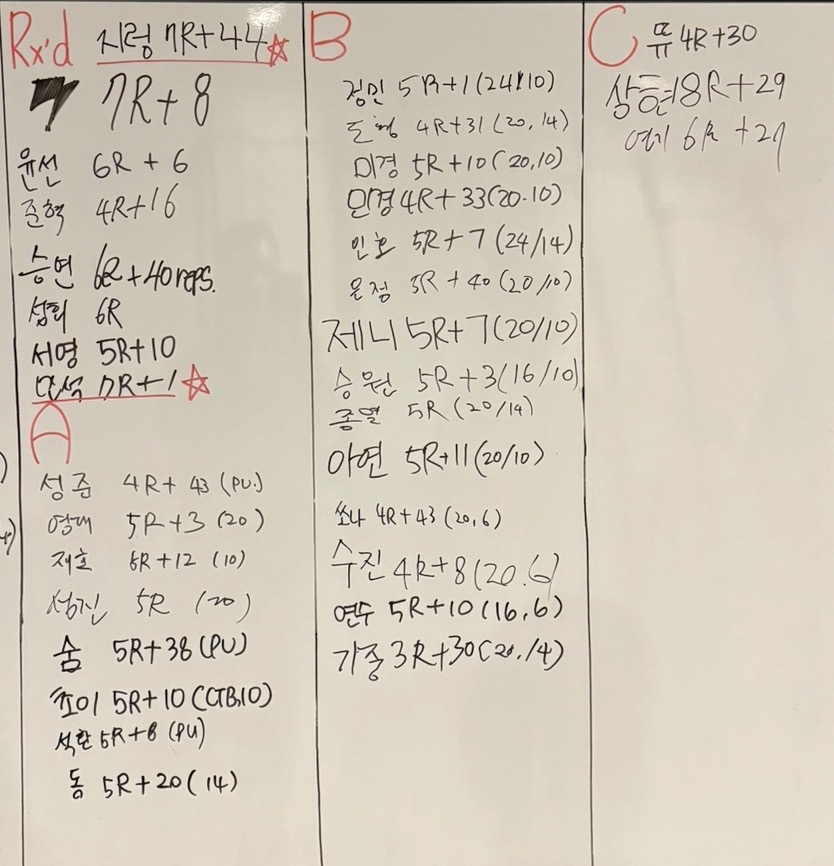 Rx'd 지렁 7R+44
7R+8
윤선 6R + 6
준혁 4R+16
승연 6R+40reps.
섭희 6R
서영 5R+10
민석 7R+1
A
성준 4R+ 43 (PU.)
영대 5R+3 (20)
재호 5R+12 (10)
성진 5R (20)
솜 5R+38(PU)
초이 5R+10(CTB,10)
석환 5R+8 (PU)
동 5R+20(14)
B
정민 5R+1(24/10)
도형 4R+31(20,14)
미경 5R+10(20,10)
민경 4R+33(20.10)
인호 5R+7(24/14)
은정 3R+40(20/10)
제니 5R+7(20/10)
승원 5R+3(16/10)
종열 5R(20/14)
아연 5R+11(20/10)
쏘나 4R+43(20,6)
수진 4R+8(20.6)
연수 5R+10(16,6)
가종 3R+30(20,14)
C 뜌 4R+30
상현 8R+29
6R +27